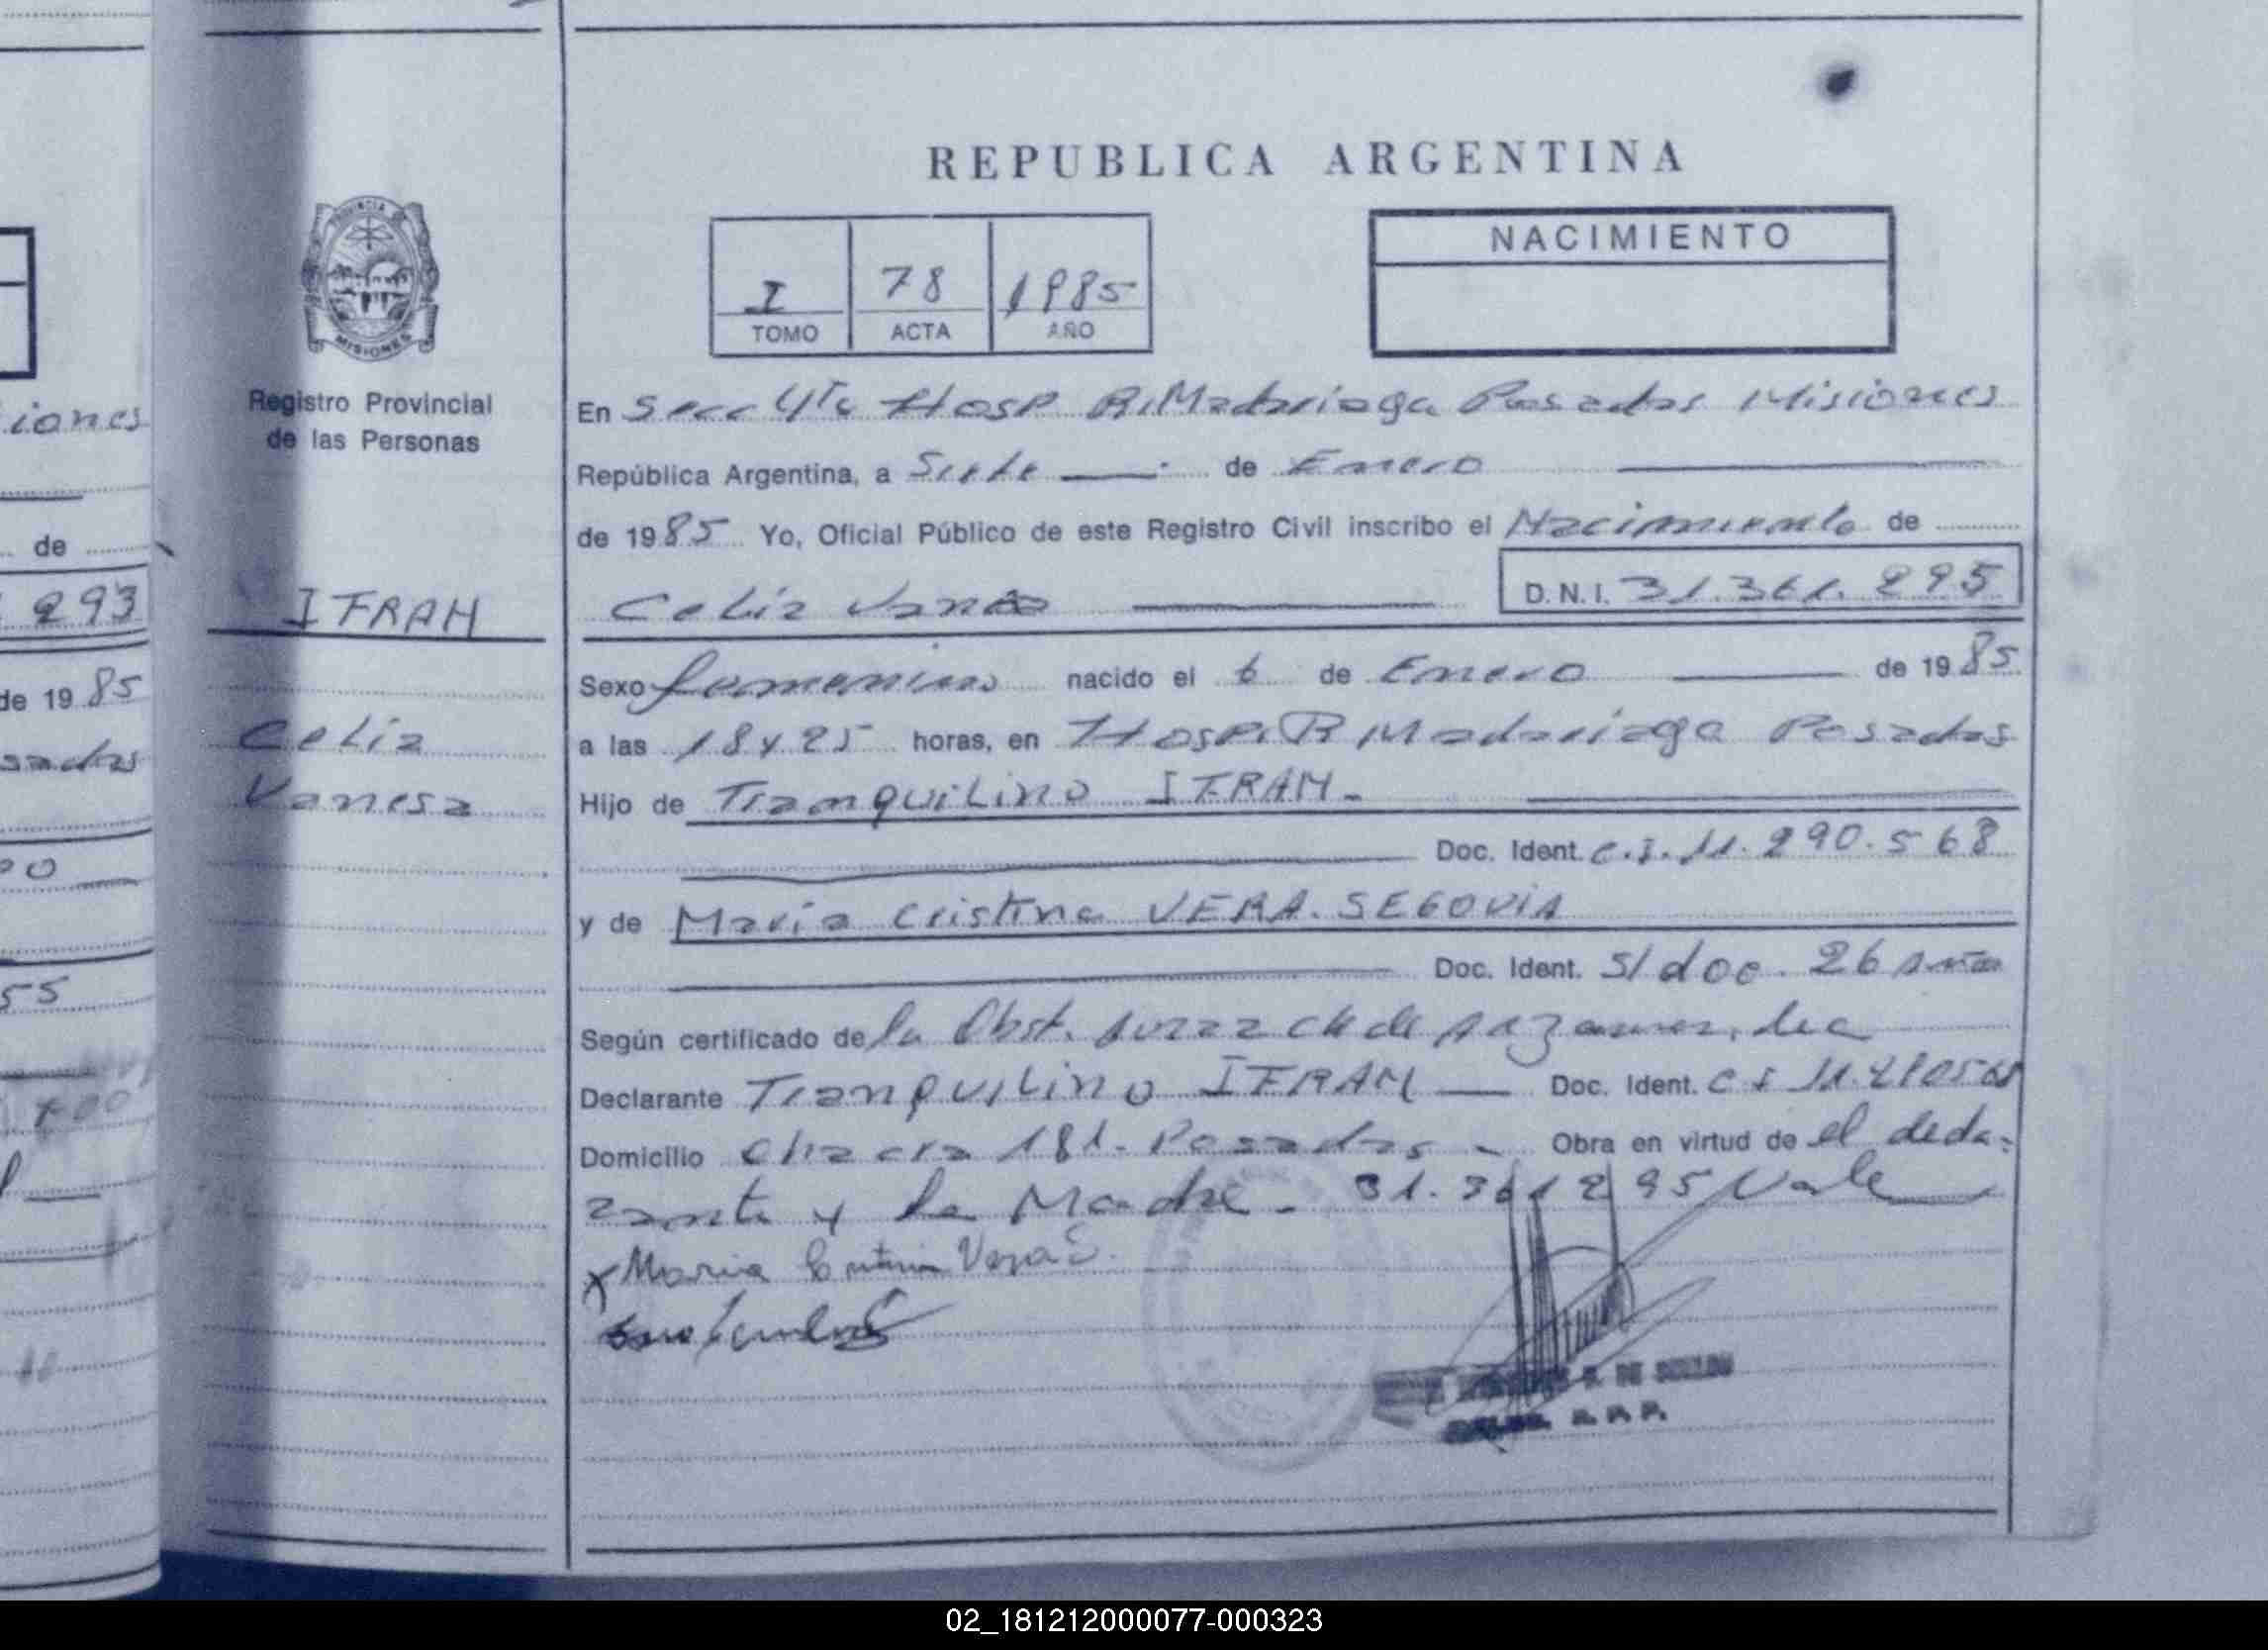 REPUBLICA ARGENTINA
PROVINCIA DE
MISIONES
I 78 1985
TOMO ACTA AÑO
NACIMIENTO
Registro Provincial
de las Personas
iones
de
293
de 19 85
sadas
55
ITRAM
Celia
Vanesa
En Secc 4ta Hosp R. Madariaga Posadas Misiones
República Argentina, a Siete de Enero
de 1985 Yo, Oficial Público de este Registro Civil inscribo el Nacimiento de
Celia D.N.I. 31.361.295
Sexo femenino nacido el 6 de Enero de 1985
a las 18 y 25 horas, en Hosp. R Madariaga Posadas
Hijo de Tranquilino ITRAM.
Doc. Ident. C.I. 11.290.568
y de Maria Cristina VERA. SEGOVIA
Doc. Ident. S/doc. 26 años
Según certificado de la Obst.
Declarante Tranquilino ITRAM Doc. Ident. C I
Domicilio Chacra 181. Posadas - Obra en virtud de el decla-
rante y la Madre. 31.361295 Vale
x Maria Vera S.
R. P. P.
02_181212000077-000323